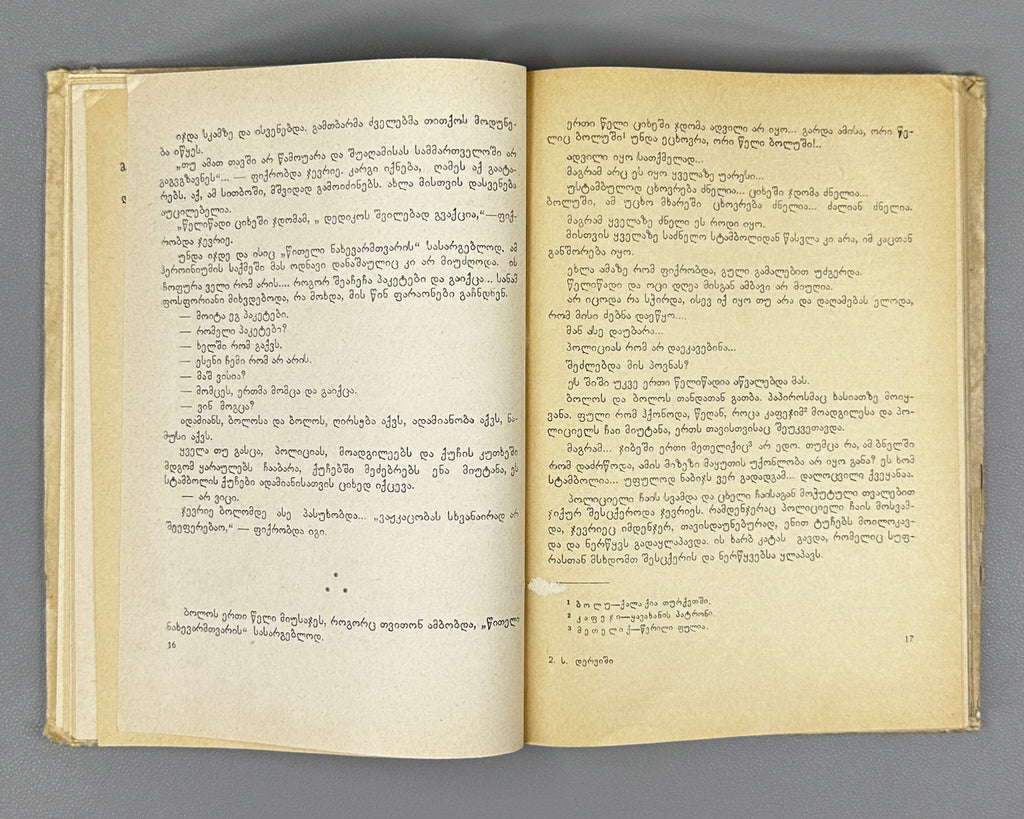 იჯდა სკამზე და ისვენებდა. გამთბარმა ძვლებმა თითქოს მოდუნე-
ბა იწყეს.
„თუ ამათ თავში არ წამოუარა და შუაღამისას სამმართველოში არ
გაგვგზავნეს“... — ფიქრობდა ჯევრიე. კარგი იქნება, ღამეს აქ გაატა-
რებს. აქ, ამ სითბოში, მშვიდად გამოიძინებს. ახლა მისთვის დასვენება
აუცილებელია.
„წელიწადი ციხეში ჯდომამ, „ დედიკოს შვილებად გვაქცია,“—ფიქ-
რობდა ჯევრიე.
უნდა იჯდე და ისიც „წითელი ნახევარმთვარის“ სასარგებლოდ. ამ
ჰეროინიუმის საქმეში მას ოდნავი დანაშაულიც კი არ მიუძღოდა. ის
ჩოფურა ველი რომ არის.... როგორ შეაჩეჩა პაკეტები და გაიქცა... სანამ
ფოსფორიანი მიხვდებოდა, რა მოხდა, მის წინ ფარაონები გაჩნდნენ.
— მოიტა ეგ პაკეტები.
— რომელი პაკეტები?
— ხელში რომ გაქვს.
— ესენი ჩემი რომ არ არის.
— მაშ ვისია?
— მომცეს, ერთმა მომცა და გაიქცა.
— ვინ მოგცა?
ადამიანს, ბოლოსა და ბოლოს, ღირსება აქვს, ადამიანობა აქვს, ნა-
მუსი აქვს.
ყველა თუ გასცა, პოლიციას, მოადგილეებს და ქუჩის კუთხეში
მდგომ ყარაულებს ჩააბარა, ქუჩებში მეძებრებს ენა მიუტანა, ეს
სტამბოლის ქუჩები ადამიანისათვის ციხედ იქცევა.
— არ ვიცი.
ჯევრიე ბოლომდე ასე პასუხობდა... „ვაჟკაცობას სხვანაირად არ
შეეფერებაო,“ — ფიქრობდა იგი.
* * *
ბოლოს ერთი წელი მიუსაჯეს, როგორც თვითონ ამბობდა, „წითელი
ნახევარმთვარის“ სასარგებლოდ.
16
ერთი წელი ციხეში ჯდომა ადვილი არ იყო... გარდა ამისა, ორი წე-
ლიც ბოლუში¹ უნდა ეცხოვრა, ორი წელი ბოლუში!..
ადვილი იყო სათქმელად...
მაგრამ არც ეს იყო ყველაზე უარესი...
უსტამბულოდ ცხოვრება ძნელია... ციხეში ჯდომა ძნელია...
ბოლუში, ამ უცხო მხარეში ცხოვრება ძნელია... ძალიან ძნელია.
მაგრამ ყველაზე ძნელი ეს როდი იყო.
მისთვის ყველაზე საძნელო სტამბოლიდან წასვლა კი არა, იმ კაცთან
განშორება იყო.
ეხლა ამაზე რომ ფიქრობდა, გული გამალებით უძგერდა.
წელიწადი და ოცი დღეა მისგან ამბავი არ მიუღია.
არ იცოდა რა სჭირდა, ისევ იქ იყო თუ არა და დაღამებას ელოდა,
რომ მისი ძებნა დაეწყო....
მან ასე დაუბარა...
პოლიციას რომ არ დაეკავებინა...
შეძლებდა მის პოვნას?
ეს შიში უკვე ერთი წელიწადია აწვალებდა მას.
ბოლოს და ბოლოს თანდათან გათბა. პაპიროსმაც ხასიათზე მოიყ-
ვანა. ფული რომ ჰქონოდა, წეღან, როცა კაფეჯიმ² მოადგილესა და პო-
ლიციელს ჩაი მიუტანა, ერთს თავისთვისაც შეუკვეთავდა.
მაგრამ... ჯიბეში ერთი მეთელიქიც³ არ ედო. თუმცა რა, ამ ბნელში
რომ დაძრწოდა, ამის მიზეზი მაყუთის უქონლობა არ იყო განა? ეს ხომ
სტამბოლია... უფულოდ ნაბიჯს ვერ გადადგამ... დალოცვილი ქვეყანაა.
პოლიციელი ჩაის სვამდა და ცხელი ჩაისაგან მოჭუტული თვალებით
ჯიქურ შესცქეროდა ჯევრიეს. რამდენჯერაც პოლიციელი ჩაის მოსვამ-
და, ჯევრიეც იმდენჯერ, თავისდაუნებურად, ენით ტუჩებს მოილოკავ-
და და ნერწყვს გადაყლაპავდა. ის ხარბ კატას გავდა, რომელიც სუფ-
რასთან მსხდომთ შესცქერის და ნერწყვებსა ყლაპავს.
¹ ბოლუ—ქალაქია თურქეთში.
² კაფეჯი—ყავახანის პატრონი.
³ მეთელიქ—წვრილი ფულია.
2. ს. დერვიში
17